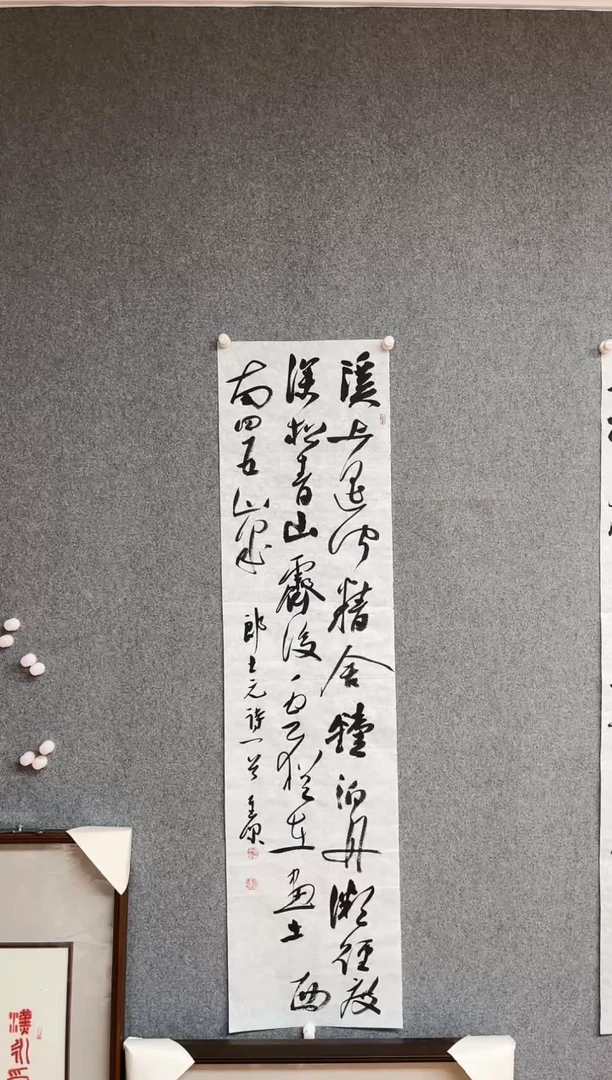 溪上遙聞精舍鐘泊舟微徑度
深松青山霽後雲猶在畫出西
南四五峯
郎士元詩一首